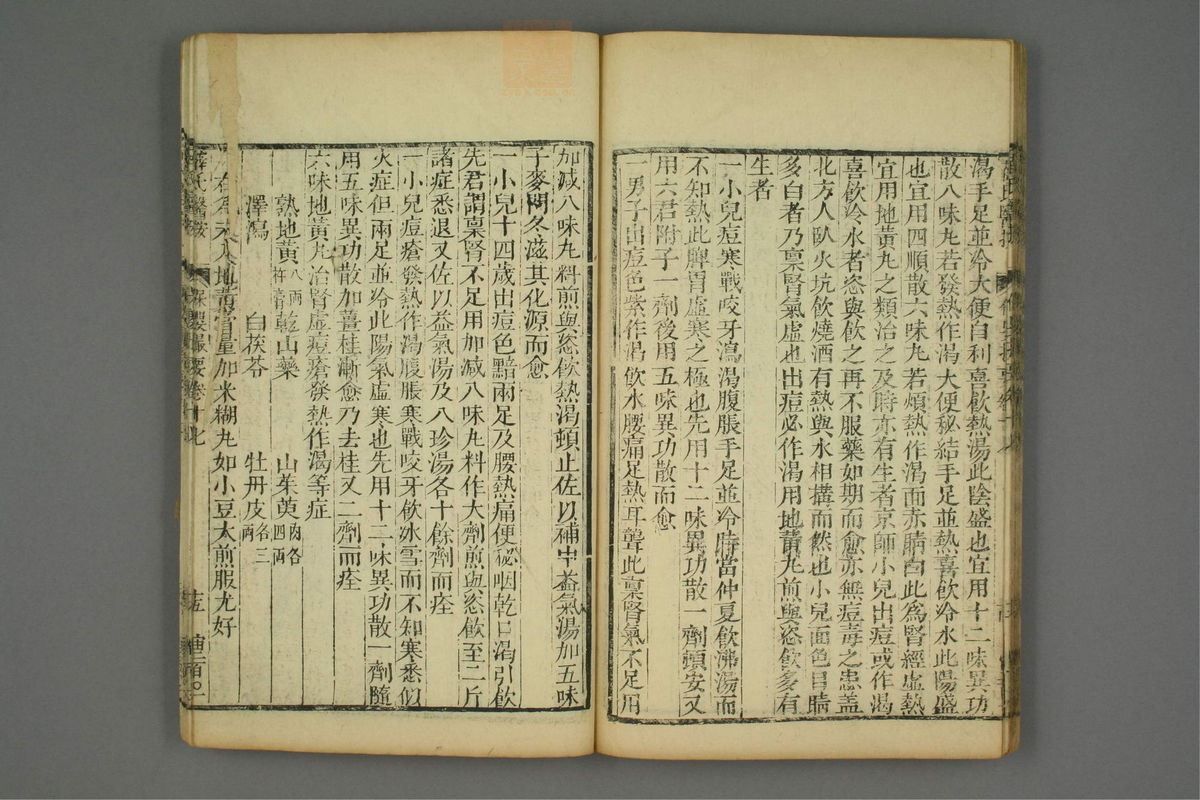 渴手足並冷大便自利喜飲熱湯此陰盛也宜用十二味異功
散八味丸若發熱作渴大便秘結手足並熱喜飲冷水此陽盛
也宜用四順散六味丸若煩熱作渴面赤睛白此為腎經虛熱
宜用地黃丸之類治之及時亦有生者京師小兒出痘或作渴
喜飲冷水者恣與飲之再不服藥如期而愈亦無痘毒之患蓋
北方人臥火坑飲燒酒有熱與水相搆而然也小兒面色目睛
多白者乃稟腎氣虛也出痘必作渴用地黃丸煎與恣飲多有
生者
一小兒痘寒戰咬牙瀉渴腹脹手足並冷時當仲夏飲沸湯而
不知熱此脾胃虛寒之極也先用十二味異功散一劑頓安又
用六君附子一劑後用五味異功散而愈
一男子出痘色紫作渴飲水腰痛足熱耳聾此稟腎氣不足用
加減八味丸料煎與恣飲熱渴頓止佐以補中益氣湯加五味
子麥門冬滋其化源而愈
一小兒十四歲出痘色黯兩足及腰熱痛便祕咽乾口渴引飲
先君謂稟腎不足用加減八味丸料作大劑煎與恣飲至二斤
諸症悉退又佐以益氣湯及八珍湯各十餘劑而痊
一小兒痘瘡發熱作渴腹脹寒戰咬牙飲冰雪而不知寒悉似
火症但兩足並冷此陽氣虛寒也先用十二味異功散一劑隨
用五味異功散加薑桂漸愈乃去桂又二劑而痊
六味地黃丸治腎虛痘瘡發熱作渴等症
熟地黃八兩杵膏 乾山藥 山茱萸肉各四兩
澤瀉 白茯苓 牡丹皮各三兩
右為末入地黃膏量加米糊丸如小豆大煎服尤好
薛氏醫按 保嬰撮要卷十七 十五